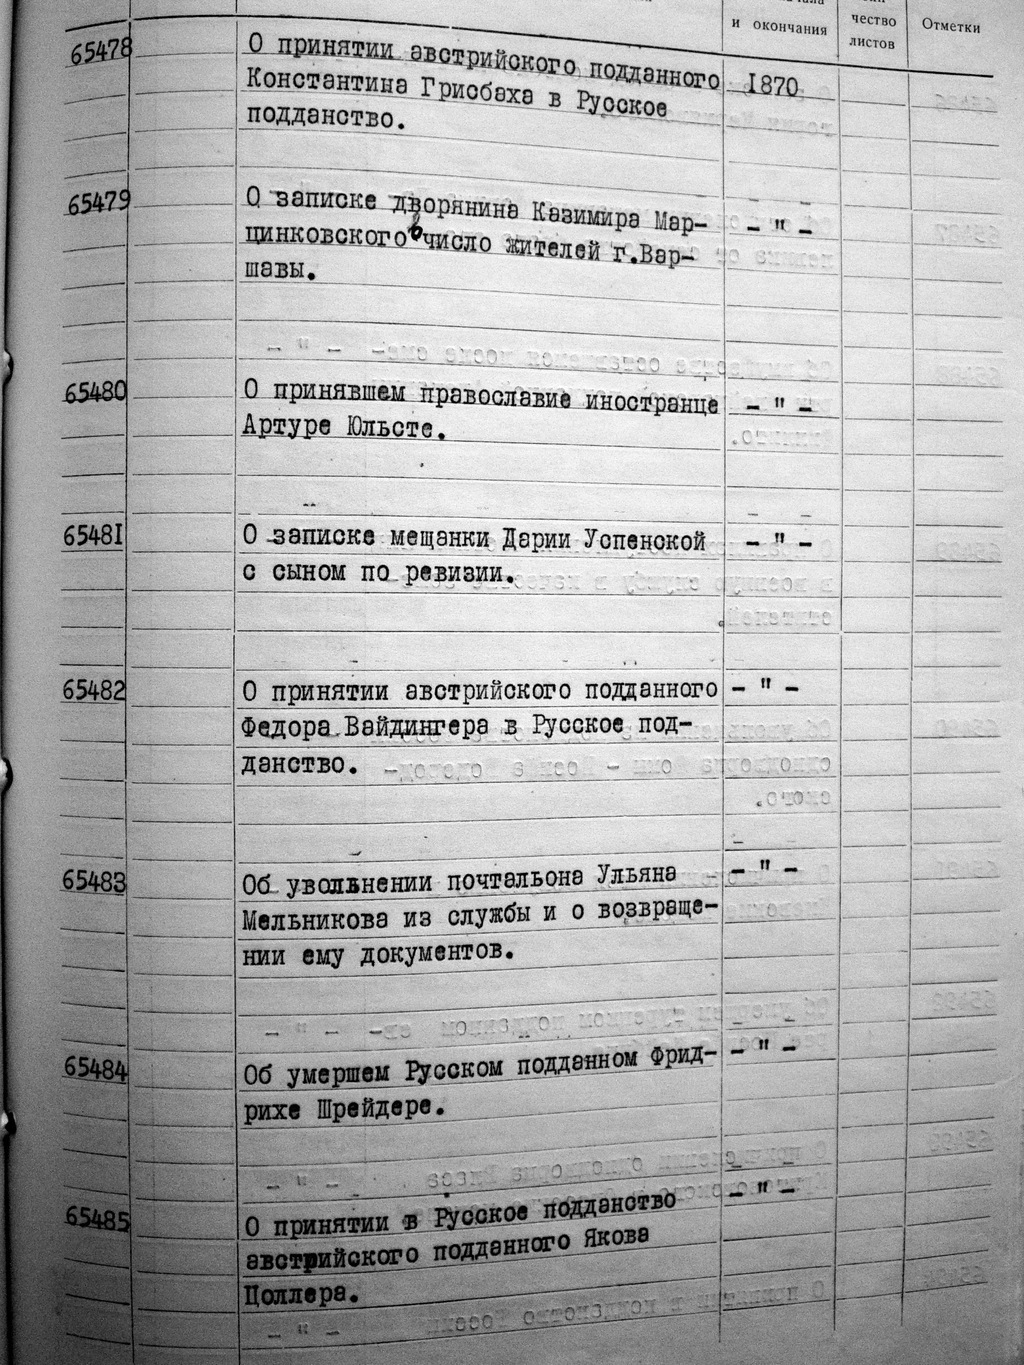 и окончания
чество
листов
Отметки
65478
О принятии австрийского подданного
1870
Константина Грисбаха в Русское
подданство.
65479
О записке дворянина Казимира Мар-
- " -
цинковского в число жителей г.Вар-
шавы.
65480
О принявшем православие иностранце
- " -
Артуре Юльсте.
65481
О записке мещанки Дарии Успенской
- " -
с сыном по ревизии.
65482
О принятии австрийского подданного
- " -
Федора Вайдингера в Русское под-
данство.
65483
Об увольнении почтальона Ульяна
- " -
Мельникова из службы и о возвраще-
нии ему документов.
65484
Об умершем Русском подданном Фрид-
- " -
рихе Шрейдере.
65485
О принятии в Русское подданство
- " -
австрийского подданного Якова
Цоллера.